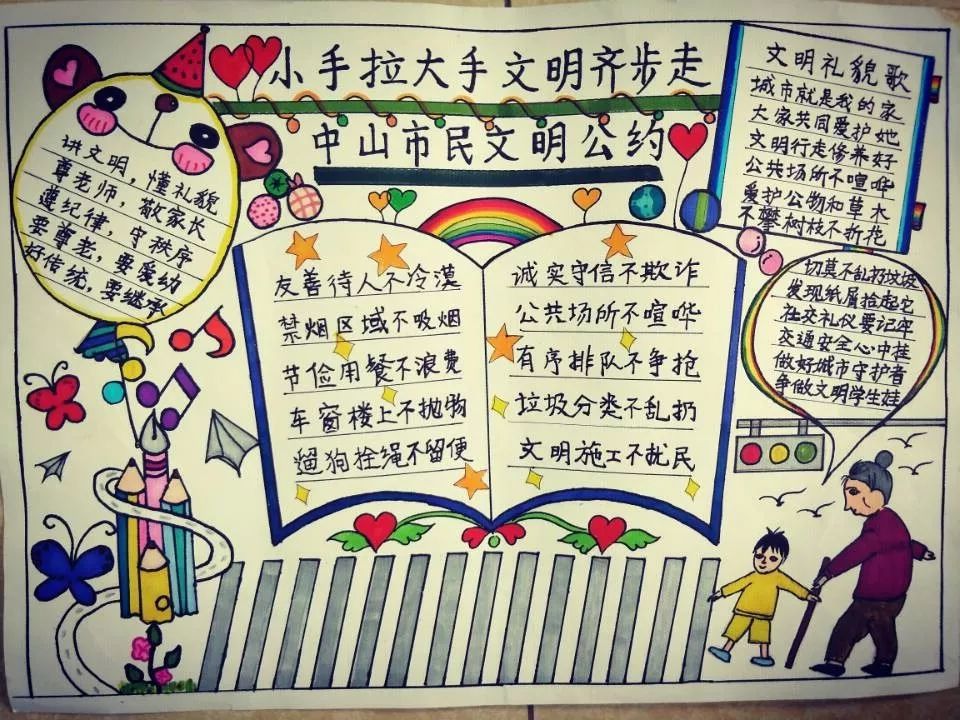 小手拉大手文明齐步走
中山市民文明公约
讲文明，懂礼貌
尊老师，敬家长
遵纪律，守秩序
要尊老，要爱幼
好传统，要继承
友善待人不冷漠
禁烟区域不吸烟
节俭用餐不浪费
车窗楼上不抛物
遛狗拴绳不留便
诚实守信不欺诈
公共场所不喧哗
有序排队不争抢
垃圾分类不乱扔
文明施工不扰民
文明礼貌歌
城市就是我的家
大家共同爱护她
文明行走修养好
公共场所不喧哗
爱护公物和草木
不攀树枝不折花
切莫不乱扔垃圾
发现纸屑捡起它
社交礼仪要记牢
交通安全心中挂
做好城市守护者
争做文明学生娃